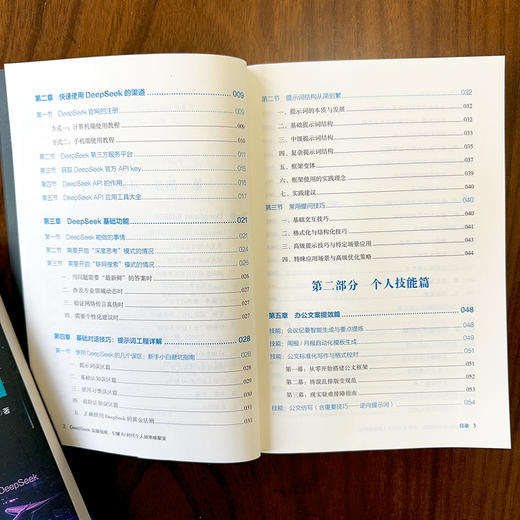 第二章 快速使用 DeepSeek 的渠道 009
第一节 DeepSeek 官网的注册 009
方式一：计算机端使用教程 009
方式二：手机端使用教程 010
第二节 DeepSeek 第三方服务平台
第三节 获取 DeepSeek 官方 API key
第四节 DeepSeek API 的作用
第五节 DeepSeek API 应用工具大全
第三章 DeepSeek 基础功能 021
第一节 DeepSeek 能做的事情 021
第二节 需要开启“深度思考”模式的情况 024
第三节 需要开启“联网搜索”模式的情况 026
一、当问题需要“最新鲜”的答案时
二、涉及专业领域动态时
三、验证网络传言真伪时
四、需要个性化建议时
第四章 基础对话技巧：提示词工程详解 028
第一节 使用 DeepSeek 的几个误区：新手小白避坑指南 028
一、提示词误区篇
二、基础认知误区篇
三、使用习惯误区篇
四、高阶认知误区篇
五、正确使用 DeepSeek 的黄金法则 031
2 DeepSeek 实操指南：引爆 AI 时代个人效率核聚变
第二节 提示词结构从简到繁 032
一、提示词的本质与发展 032
二、基础提示词结构
三、中级提示词结构
四、复杂提示词结构
五、框架变体
六、框架使用的实践理念
七、实践建议
第三节 常用提问技巧
一、基础交互技巧
二、格式化与结构化技巧
三、高级提示技巧与特定场景应用
四、特殊应用场景与高级优化策略
第二部分 个人技能篇
第五章 办公文案提效篇 048
技能：会议纪要智能生成与要点提炼 048
技能：周报 / 月报自动化模板生成
技能：公文标准化写作与格式校对
第一幕：从零开始搭建公文框架 051
第二幕：错误乱排版变规范
第三幕：现实疑难排障指南
技能：公文仿写（含重要技巧——逆向提示词） 054
目录 3
著
DeepSeek